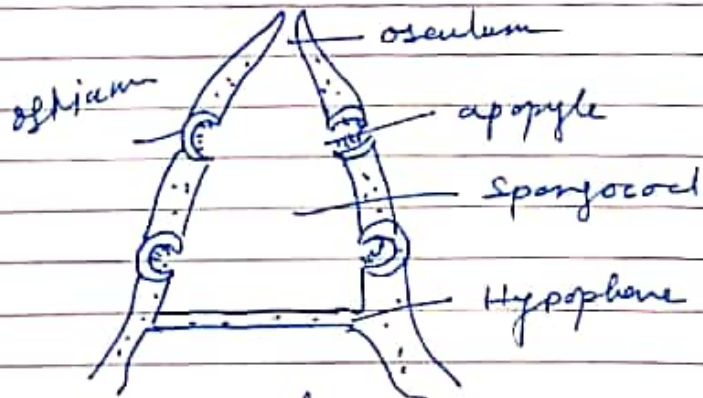 osculum
ostium
apopyle
Spongocoel
Hypophare